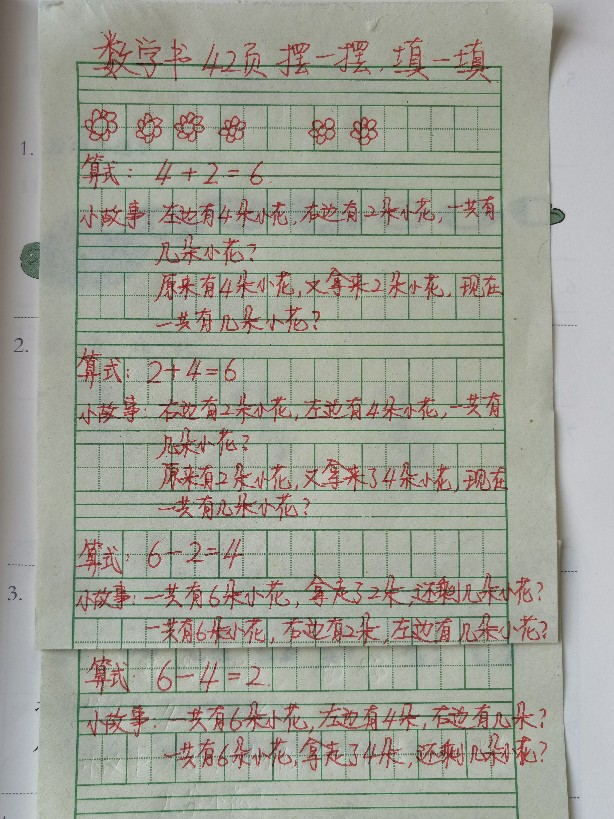 数学书42页摆一摆,填一填
1.
算式: 4+2=6
小故事:左边有4朵小花,右边有2朵小花,一共有
几朵小花?
原来有4朵小花,又拿来2朵小花,现在
一共有几朵小花?
2.
算式: 2+4=6
小故事:右边有2朵小花,左边有4朵小花,一共有
几朵小花?
原来有2朵小花,又拿来了4朵小花,现在
一共有几朵小花?
算式: 6-2=4
3.
小故事:一共有6朵小花,拿走了2朵,还剩几朵小花?
一共有6朵小花,右边有2朵,左边有几朵小花?
算式: 6-4=2
小故事:一共有6朵小花,左边有4朵,右边有几朵?
一共有6朵小花,拿走了4朵,还剩几朵小花?